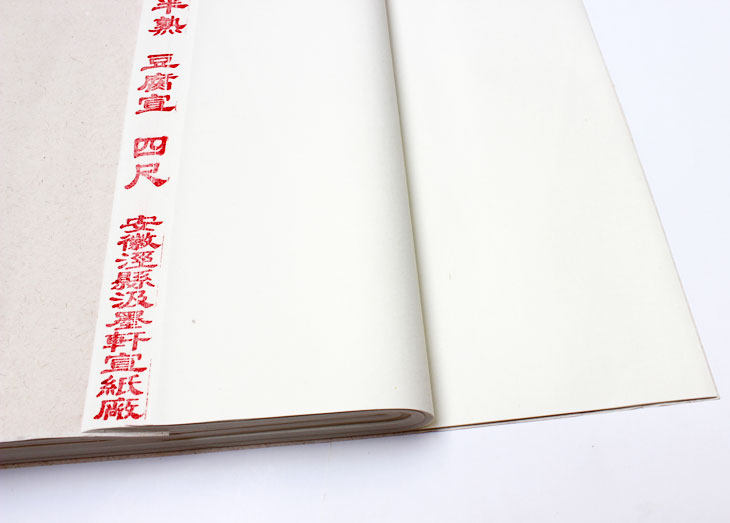 半熟 豆腐宣 四尺 安徽泾縣汲墨軒宣紙廠